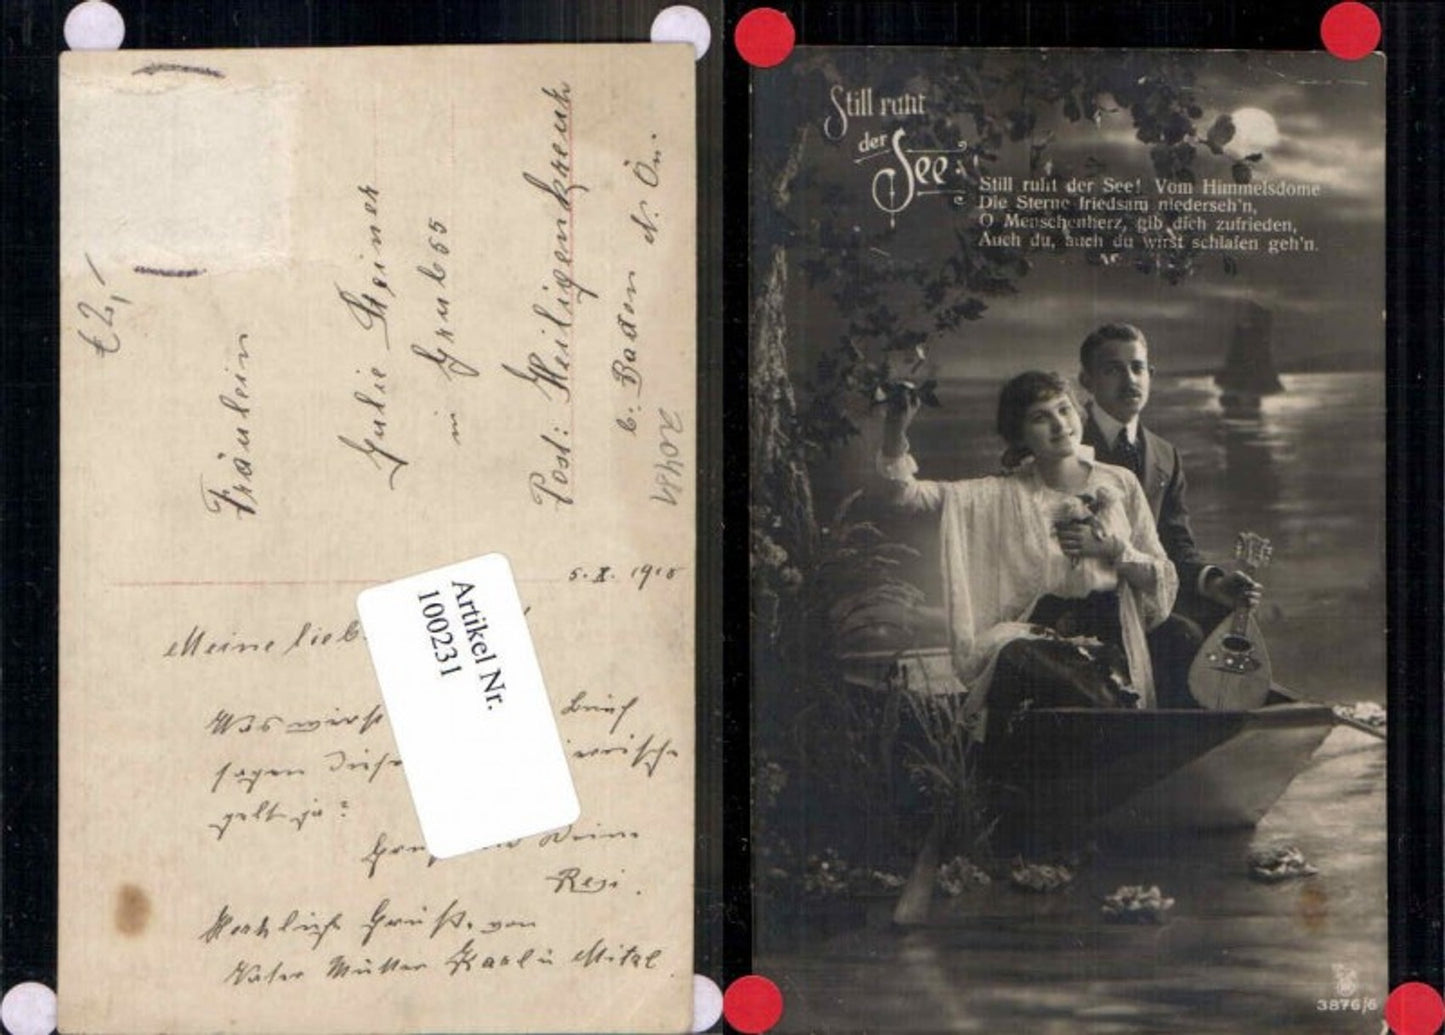 € 2,-
Fräulein
Julie Steiner
in Grub 65
Post: Heiligenkreuz
b. Baden N. Ö.
20484
5. X. 1915
Meine lieb
Was wirst Brief
sagen diese
gelt ja?
Deine
Resi.
Herzliche Grüße von
Vater Mutter Karl u Mitzl.
Artikel Nr.
100231
Still ruht
der See.
Still ruht der See! Vom Himmelsdome
Die Sterne friedsam niederseh'n,
O Menschenherz, gib dich zufrieden,
Auch du, auch du wirst schlafen geh'n.
3876/6